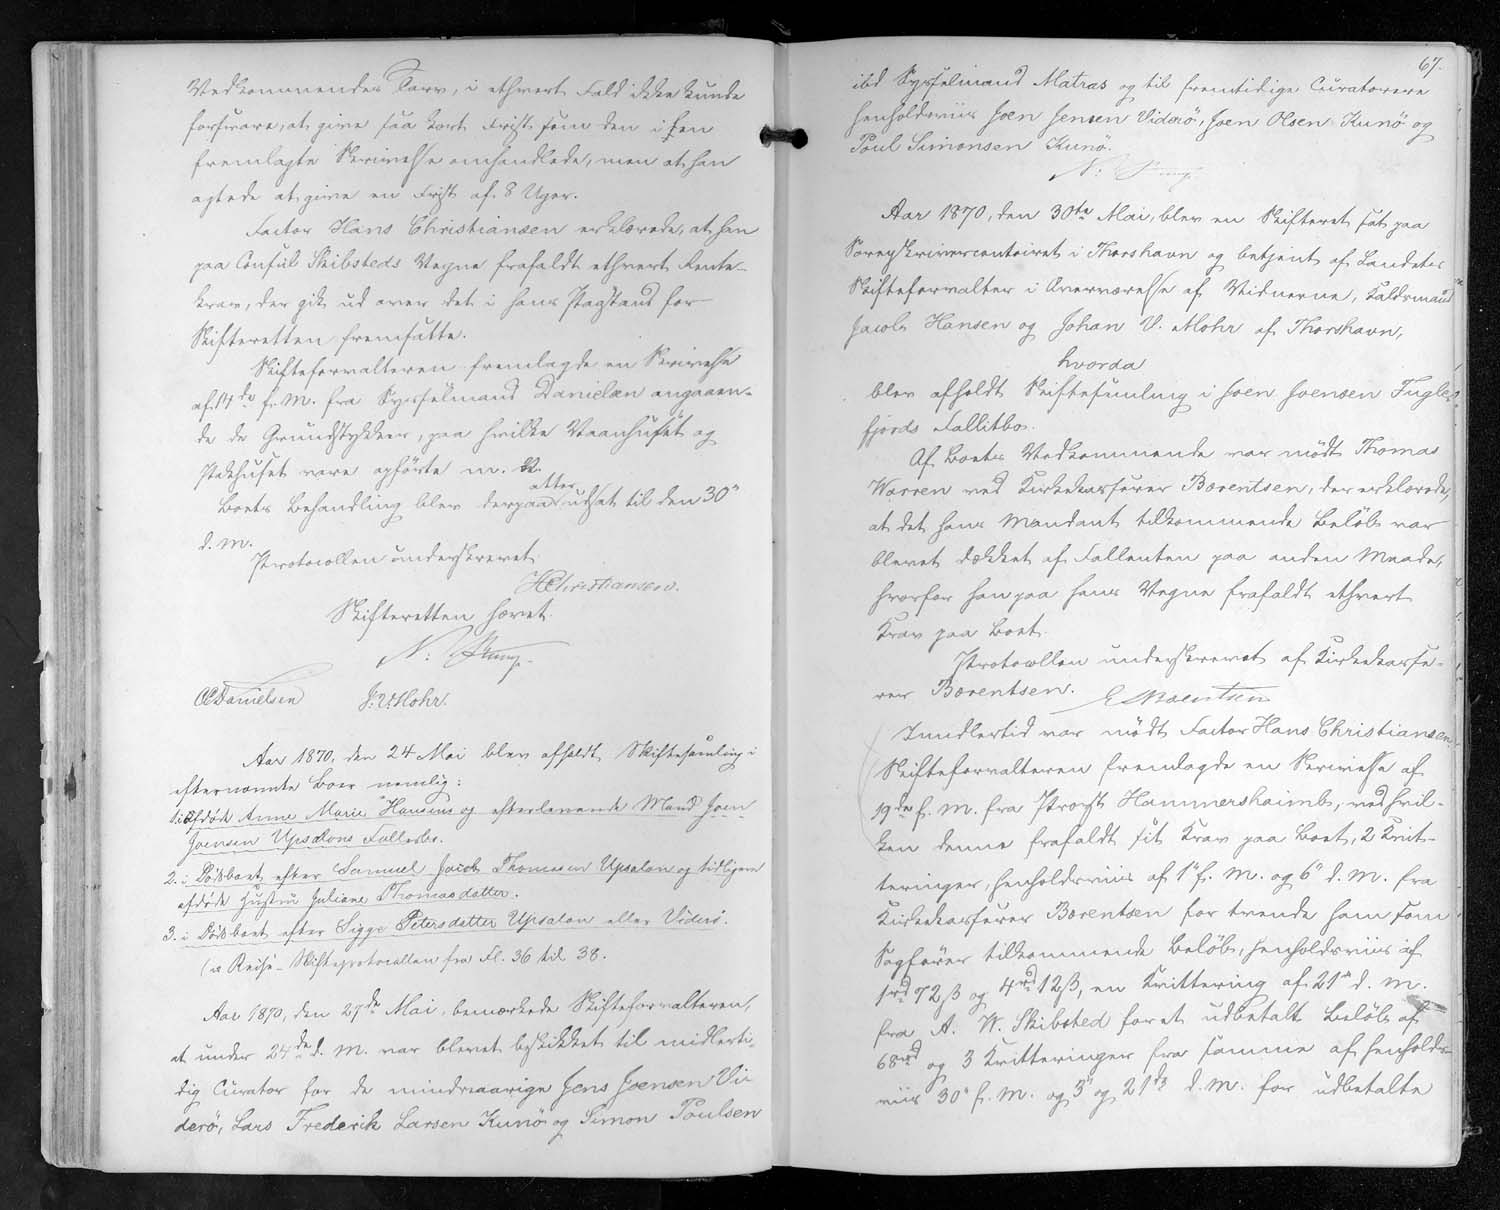 Vedkommendes Tarv, i ethvert Fald ikke kunde
forsvare, at give saa kort Frist som den i Een
fremlagte Skrivelse omhandlede, men at han
agtede at give en Frist af 8 Uger.
Factor Hans Christiansen erklærede, at han
paa Consul Skibsteds Vegne frafaldt ethvert Rente-
krav, der gik ud over det i hans Paastand for
Skifteretten fremsatte.
Skifteforvalteren fremlagde en Skrivelse
af de f. M. fra Sysselmand Danielsen angaaen-
de de Grundstykker, paa hvilke Vaanhuset og
Pakhuset vare opførte m. V.
Boets Behandling blev derpaa atter udsat til den 30te
d. M.
Protocollen underskrevet
HChristiansen.
Skifteretten hævet.
N:
Danielsen J. V. Mohr.
Aar 1870, den 24 Mai blev afholdt Skiftesamling i
efternævnte Boer nemlig:
1. i afdøde Anne Marie Hansens og efterlevende Mand Joen
Joensen Upsalons Fællesbo.
2. i Dødsboet efter Samuel Jacob Thomasen Upsalon og tidligere
afdøde Hustru Juliane Thomasdatter.
3. i Dødsboet efter Sigge Petersdatter Upsalon eller Viderø.
(cfr Reise-Skifteprotocollen fra Fl. 36 til 38.
Aar 1870, den 27de Mai, bemærkede Skifteforvalteren,
at under 24de d. M. var blevet beskikket til midlerti-
dig Curator for de mindreaarige Jens Joensen Vi-
derø, Lars Frederik Larsen Kunø og Simon Poulsen
67.
ibd Sysselmand Matras og til fremtidige Curatorere
henholdsviis Joen Jensen Viderø, Joen Olsen Kunø og
Poul Simonsen Kunø.
N:
Aar 1870, den 30te Mai, blev en Skifteret sat paa
Sorenskrivercontoiret i Thorshavn og betjent af Landets
Skifteforvalter i Overværelse af Vidnerne, Kaldsmand
Jacob Hansen og Johan V. Mohr af Thorshavn,
hvorda
blev afholdt Skiftesamling i Joen Joensen Fugle-
fjords Fallitbo.
Af Boets Vedkommende var mødt Thomas
Warren ved Kirkekasserer Bærentsen, der erklærede,
at det hans Mandant tilkommende Beløb var
blevet dækket af Fallenten paa anden Maade,
hvorfor han paa hans Vegne frafaldt ethvert
Krav paa Boet.
Protocollen underskrevet af Kirkekasse-
rer Bærentsen. E Bærentsen
Imidlertid var mødt Factor Hans Christiansen.
Skifteforvalteren fremlagde en Skrivelse af
19de f. M. fra Provst Hammershaimb, ved hvil-
ken denne frafaldt sit Krav paa Boet, 2 Kvit-
teringer, henholdsviis af 1ste f. M. og 6te d. M. fra
Kirkekasserer Bærentsen for trende ham som
Sagfører tilkommende Beløb, henholdsviis af
1rd 72ß og 4rd 12ß, en Kvittering af 21de d. M.
fra A. W. Skibsted for et udbetalt Beløb af
68rd og 3 Kvitteringer fra samme af henholds-
viis 30te f. M. og 3de og 21de d. M. for udbetalte